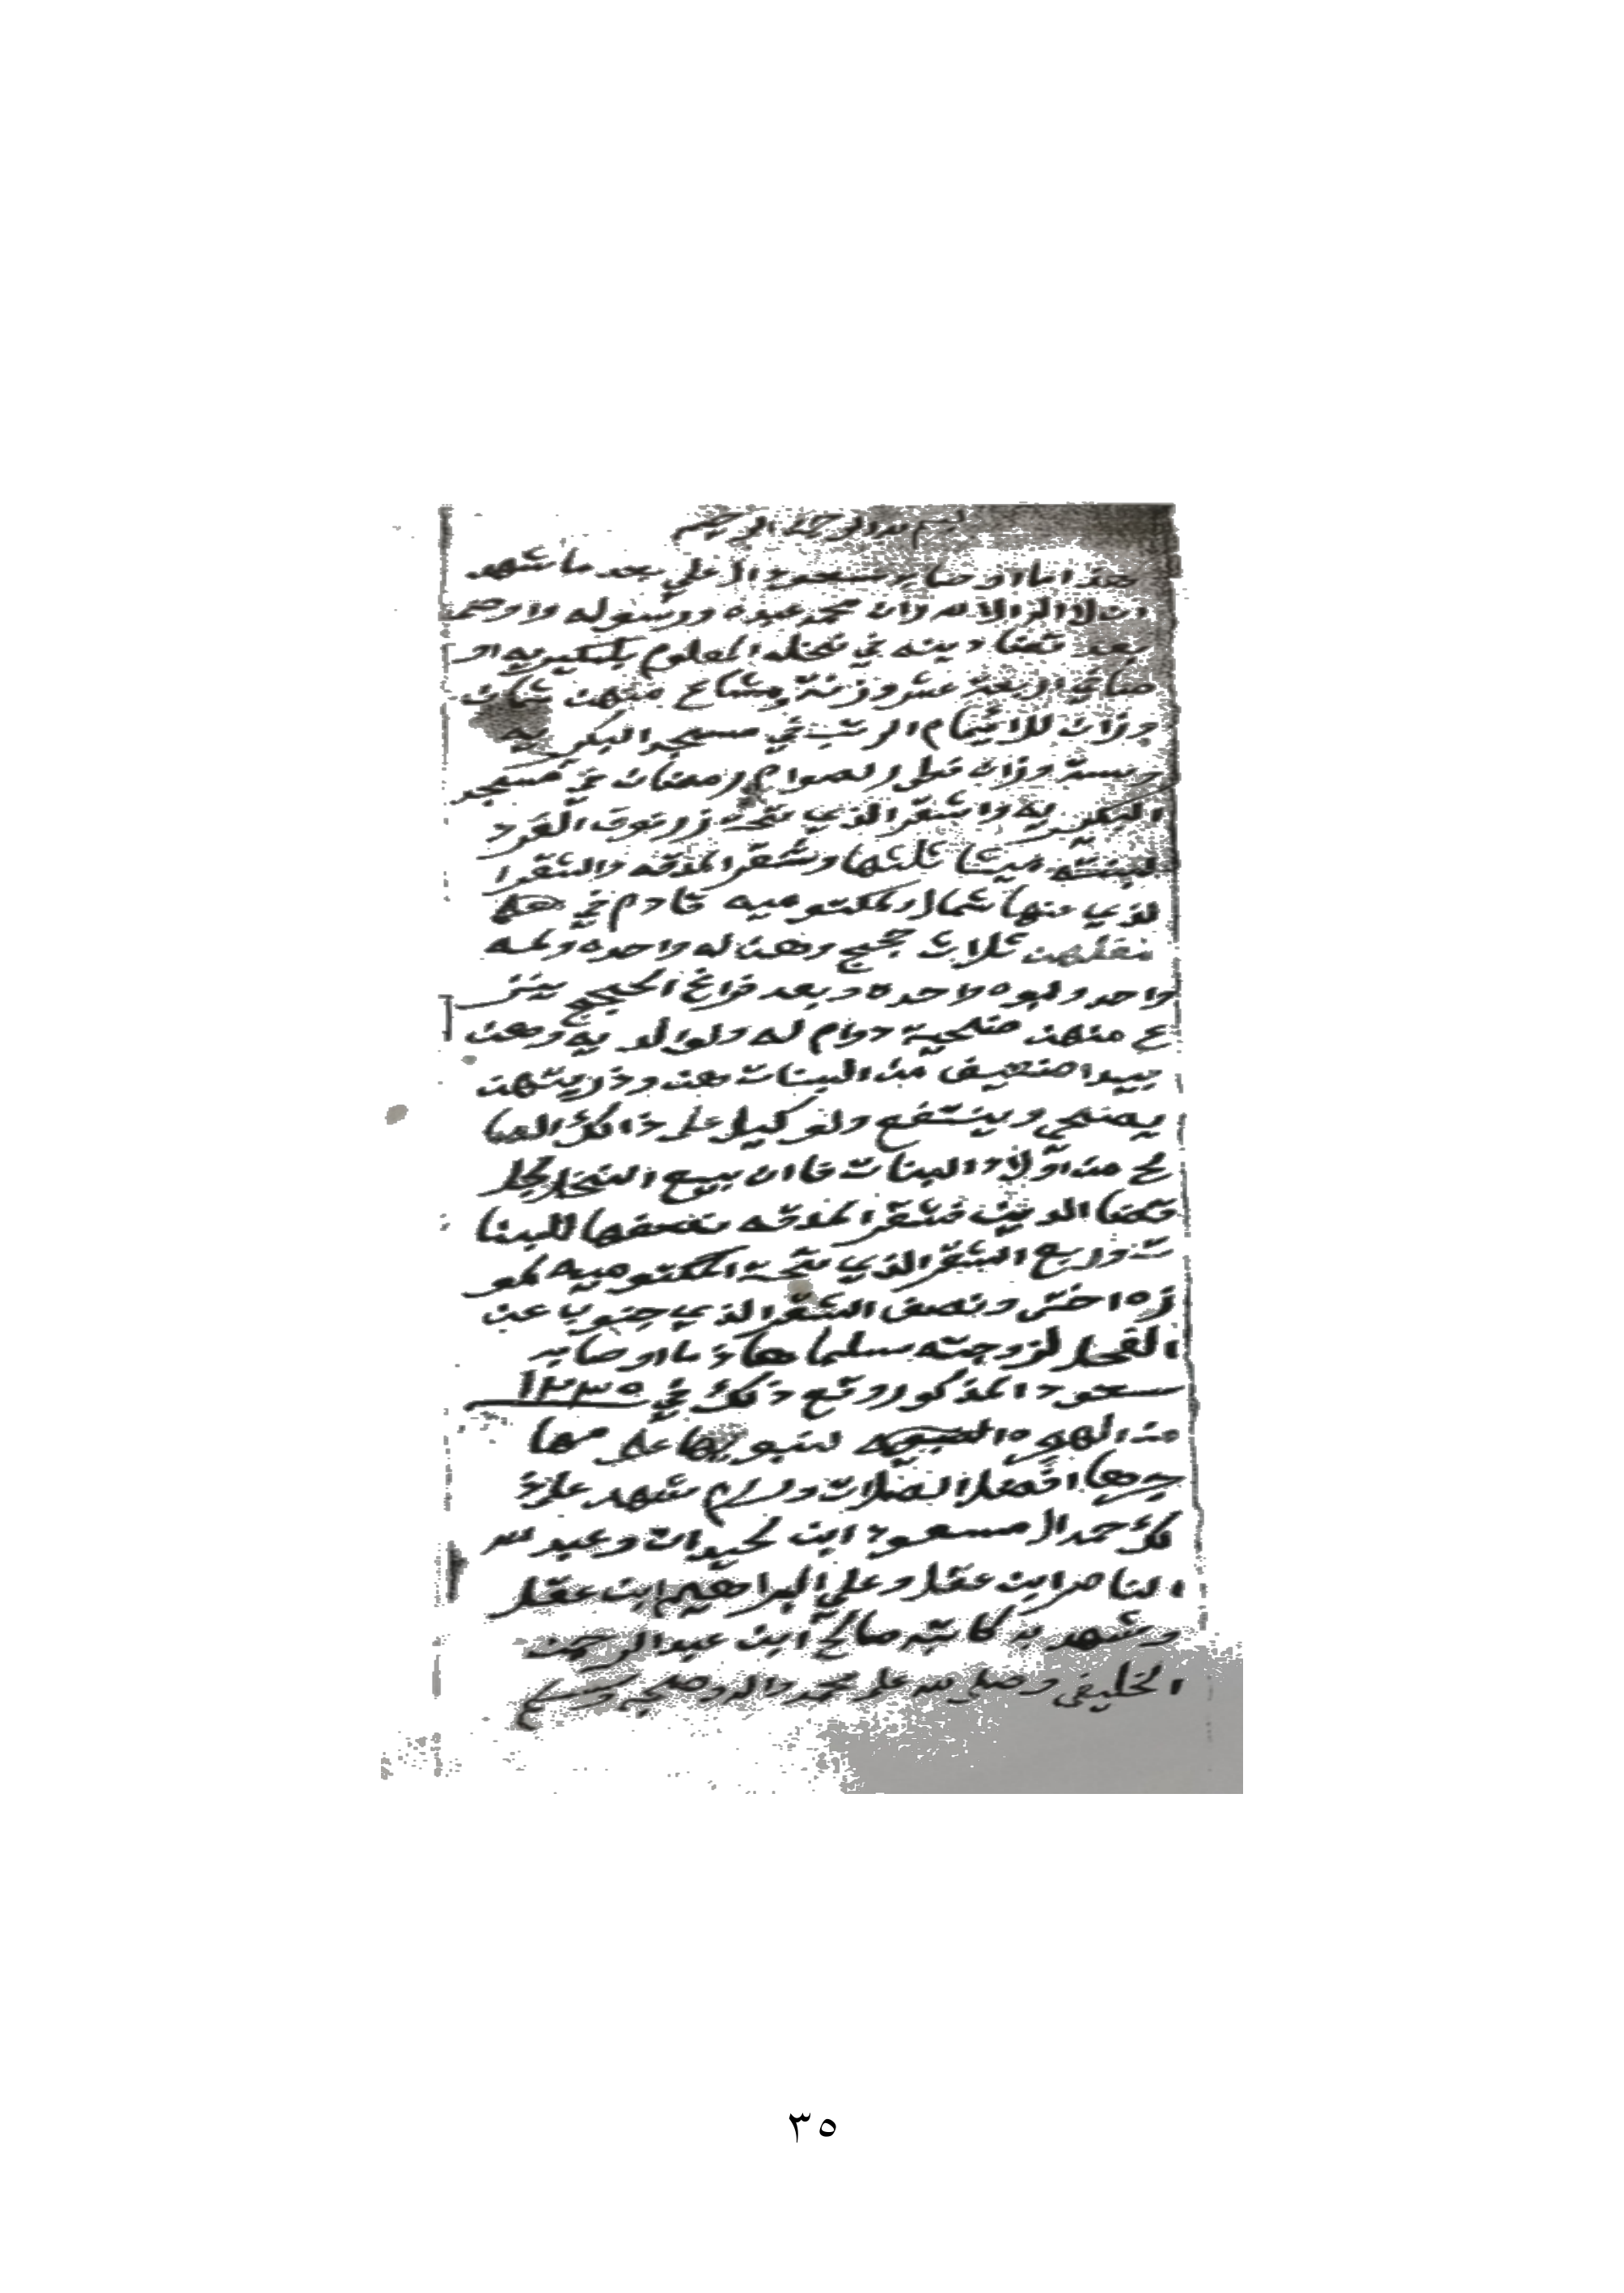 بسم الله الرحمن الرحيم
هذا ما اوصا به سعود ال علي بعد ما شهد
ان لا اله الا الله وان محمد عبده ورسوله واوصى
بعد قضا دينه في نخله المعلوم بلبكيريه او
صافي اربعة عشر وزنة ومشاع منهن ثمان
وزان للاميمام الرتب في مسجد البكيريه
وسسة وزان فطر لصوام رمضان في مسجد
البكيريه واشقر الذي تحت زرنوق الفرد
لبنته ميثا ثلثها وشقر المدقه والشقرا
لذي منها شمال ومكتوميه قادم في
نغلهن ثلاث حجج وهن له واحده ولمه
واحد ولبوه واحده وبعد فراغ الحجيج ينز
ع منهن ضحية دوام له ولوالديه وهن
بيد اضعيف من البنات هن وذريتهن
يضحي وينتفع ولوكيل على ذالك الصا
لح من اولاد البنات فان بيع النخل لجل
قضا الدين فشقر المدقه نصفها للبنا
ت وربع الشقر الذي تحت المكتوميه لمو
زه اختى ونصف الشقر الذي جنوب عن
الفحل لزوجته سلما هاذ ما اوصا به
سعود المذكور وقع ذلك في ١٢٣٥
من الهجره النبويه لنبويها على مها
جرها افضل الصلات وسلام شهد على ذ
لك حمد ال مسعود ابن لحيدان وعبد الله
الناصر ابن عقل وعلي البراهيم ابن عقل
وشهد به كاتبه صالح ابن عبدالرحمن
الخليفي وصلى الله على محمد واله وصحبه وسلم
٣٥